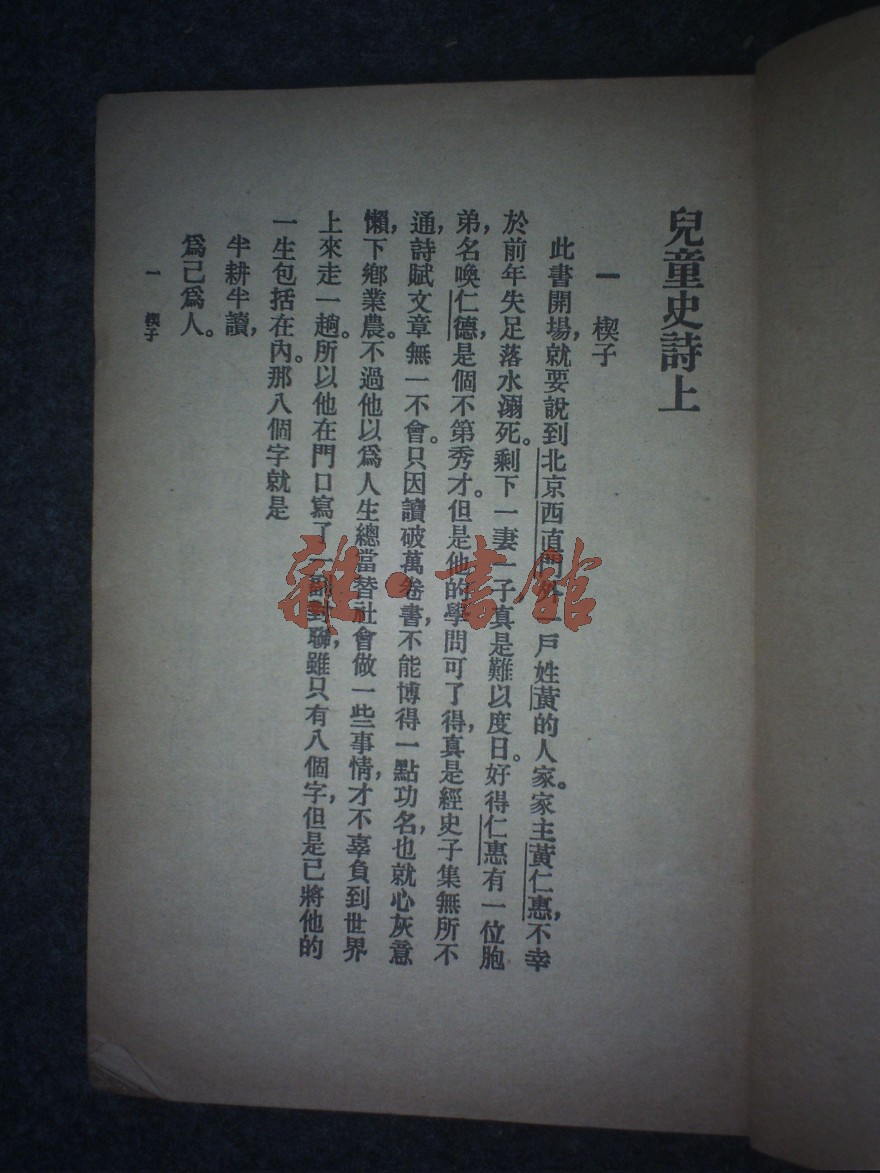 兒童史詩上
一　楔子
此書開場，就要說到北京西直門外一戶姓黃的人家。家主黃仁惠，不幸
於前年失足落水溺死。剩下一妻一子真是難以度日。好得仁惠有一位胞
弟，名喚仁德，是個不第秀才。但是他的學問可了得，真是經史子集無所不
通，詩賦文章無一不會。只因讀破萬卷書，不能博得一點功名，也就心灰意
懶，下鄉業農。不過他以爲人生總當替社會做一些事情，才不辜負到世界
上來走一趟。所以他在門口寫了一副對聯，雖只有八個字，但是已將他的
一生包括在內。那八個字就是
半耕半讀，
爲己爲人。
一　楔子
雜·書館